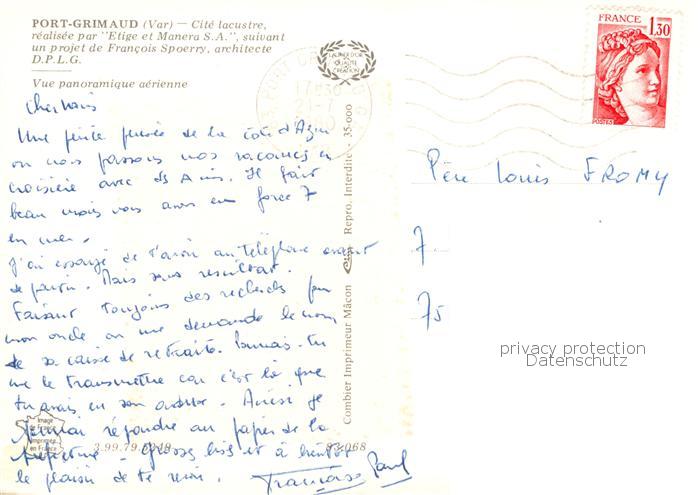 PORT-GRIMAUD (Var) — Cité lacustre,
réalisée par "Etige et Manera S.A.", suivant
un projet de François Spoerry, architecte
D.P.L.G.
Vue panoramique aérienne
Cher Louis
Une petite pensée de la côte d'Azur
où nos passons nos vacances en
croisière avec des Amis. Il fait
beau mais nous avons eu force 7
en mer.
J'ai essayé de t'avoir au téléphone avant
de partir. Mais sans résultat.
Faisant toujours des recherches pour
mon oncle on me demande le nom
de sa caisse de retraite. Pourrais-tu
me le transmettre car c'est là que
tu avais eu son adresse. Ainsi je
pourrai répondre au papier de la
préfecture. Grosses bises et à bientôt
le plaisir de te revoir. Françoise Paul
Image
de France
Imprimée
en France
3.99.79.
83.068
Combier Imprimeur Mâcon
Repro. Interdite - 35-000
LAURIER D'OR
QUALITÉ
CRÉATION
17H30
21-7
FRANCE
1,30
POSTES
Père Louis FROMY
7
75
privacy protection
Datenschutz